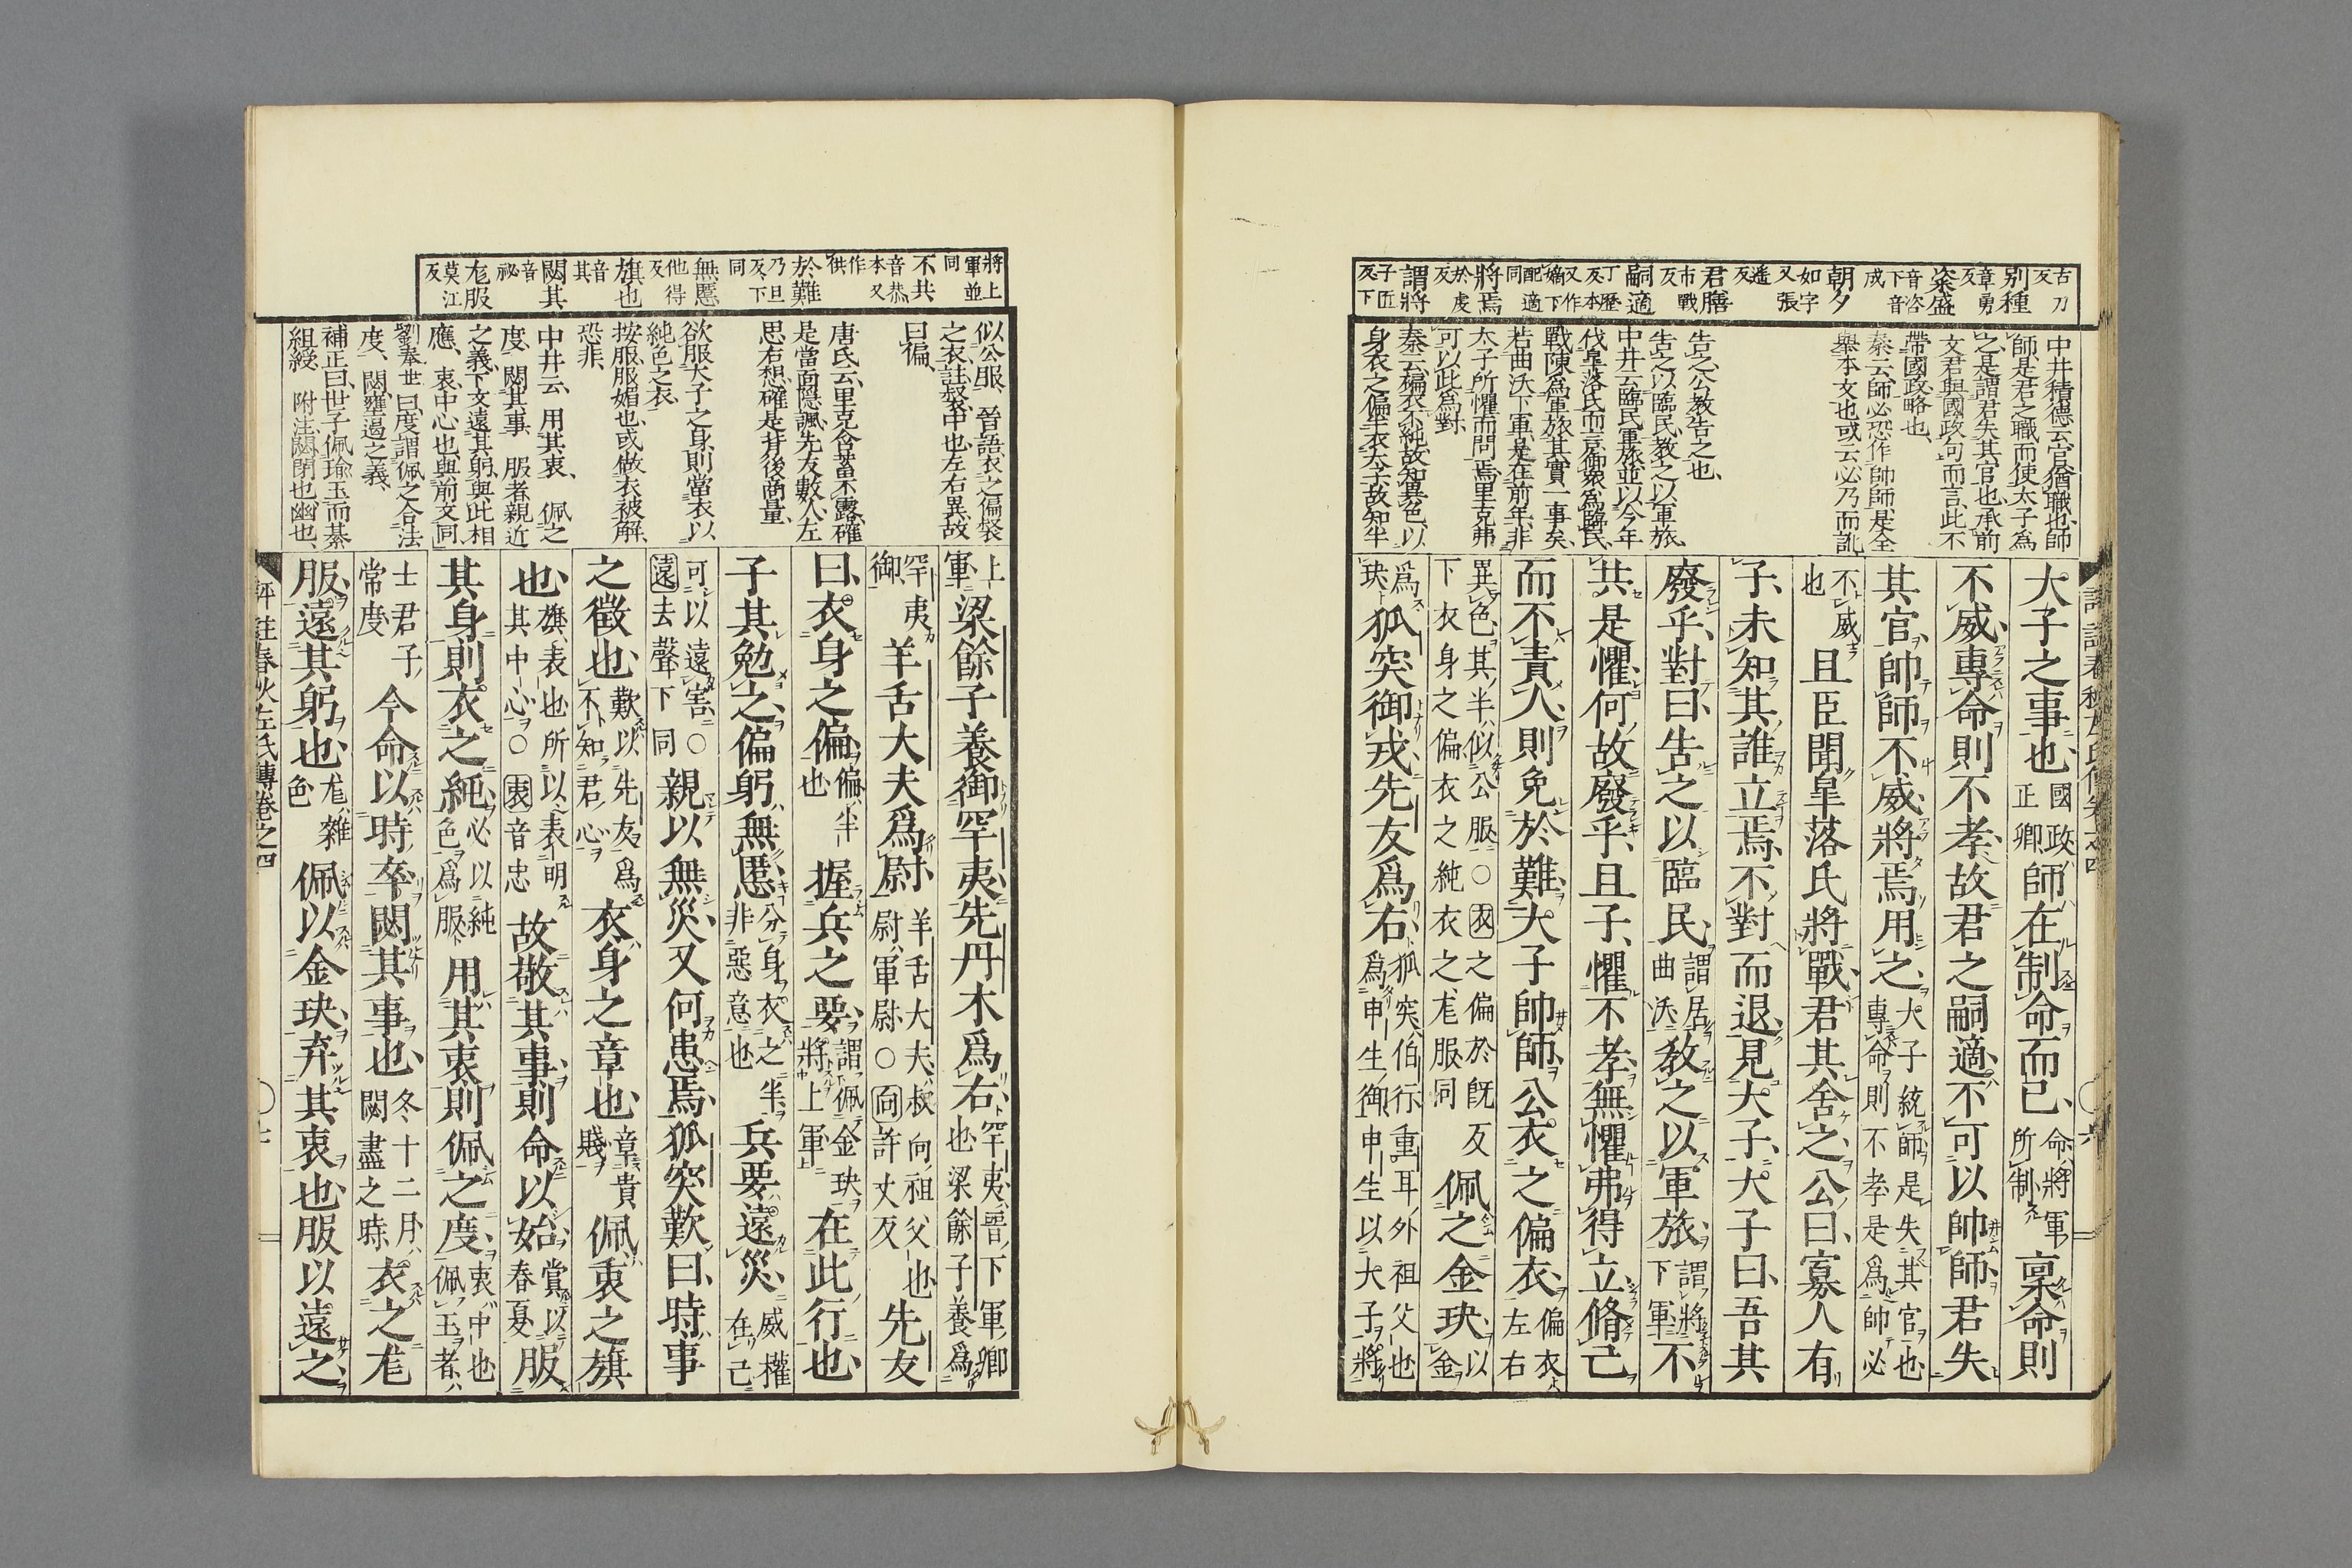 古刀反
别種
章勇反
粢盛
音咨下音成
朝夕
如字又張遥反
君膳
市戰反
嗣適
丁歷反本又作嫡下配適同
將焉
於虔反
謂將
子匠反下
中井積德云官猶職也師
師是君之職而使太子爲
之是謂君失其官也承前
文君與國政句而言此不
帶國政略也
秦云師必恐作帥師是全
舉本文也或云必乃而訛
告之公敎告之也
告之以臨民敎之以軍旅
中井云臨民軍旅並以今年
伐皐落氏而言御衆爲臨民
戰陳爲軍旅其實一事矣
若曲沃下軍是在前年非
太子所懼而問焉里克弗
可以此爲對
秦云偏衣不純故知異色以
身衣之偏半衣大子故知半
大子之事也國政正卿師在制命而已命將軍所制稟命則
不威專命則不孝故君之嗣適不可以帥師君失
其官帥師不威將焉用之大子統師是失其官也專命則不孝是爲師必
不威也且臣聞皐落氏將戰君其舍之公曰寡人有
子未知其誰立焉不對而退見大子大子曰吾其
廢乎對曰告之以臨民謂居曲沃敎之以軍旅謂將下軍不
共是懼何故廢乎且子懼不孝無懼弗得立脩己
而不責人則免於難大子帥師公衣之偏衣偏衣左右
異色其半似公服○衣之偏於旣反下衣身之偏衣之純衣之尨服同佩之金玦以金
爲玦狐突御戎先友爲右狐突伯行重耳外祖父也爲申生御申生以大子將
將上軍並同
不共
音恭本又作供
於難
乃旦反下同
無慝
他得反
旗也
音其
閟其
音祕
尨服
莫江反
似公服　晉語衣之偏裻
之衣註裻中也左右異故
曰偏
唐氏云里克含蓄不露確
是當面隠諷先友數人左
思右想確是背後商量
欲服大子之身則當衣以
純色之衣
按服服媚也或做衣被解
恐非
中井云　用其衷　佩之
度　閟其事　服者親近
之義下文遠其躬與此相
應　衷中心也與前文同
劉奉世曰度謂佩之合法
度　閟壅遏之義
補正曰世子佩瑜玉而綦
組綬　附注閟閉也幽也
上軍梁餘子養御罕夷先丹木爲右罕夷晉下軍卿也梁餘子養爲
罕夷御羊舌大夫爲尉羊舌大夫叔向祖父也尉軍尉○向許丈反先友
曰衣身之偏偏半也握兵之要謂佩金玦將上軍在此行也
子其勉之偏躬無慝分身衣之半非惡意也兵要遠災威權在己
可以遠害○遠去聲下同親以無災又何患焉狐突歎曰時事
之徵也歎以先友爲不知君心衣身之章也章貴賤佩衷之旗
也旗表也所以表明其中心○衷音忠故敬其事則命以始賞以春夏服
其身則衣之純必以純色爲服用其衷則佩之度衷中也佩玉者
士君子常度今命以時卒閟其事也冬十二月閟盡之時衣之尨
服遠其躬也尨雜色佩以金玦弃其衷也服以遠之
評註春秋左氏傳卷之四
七